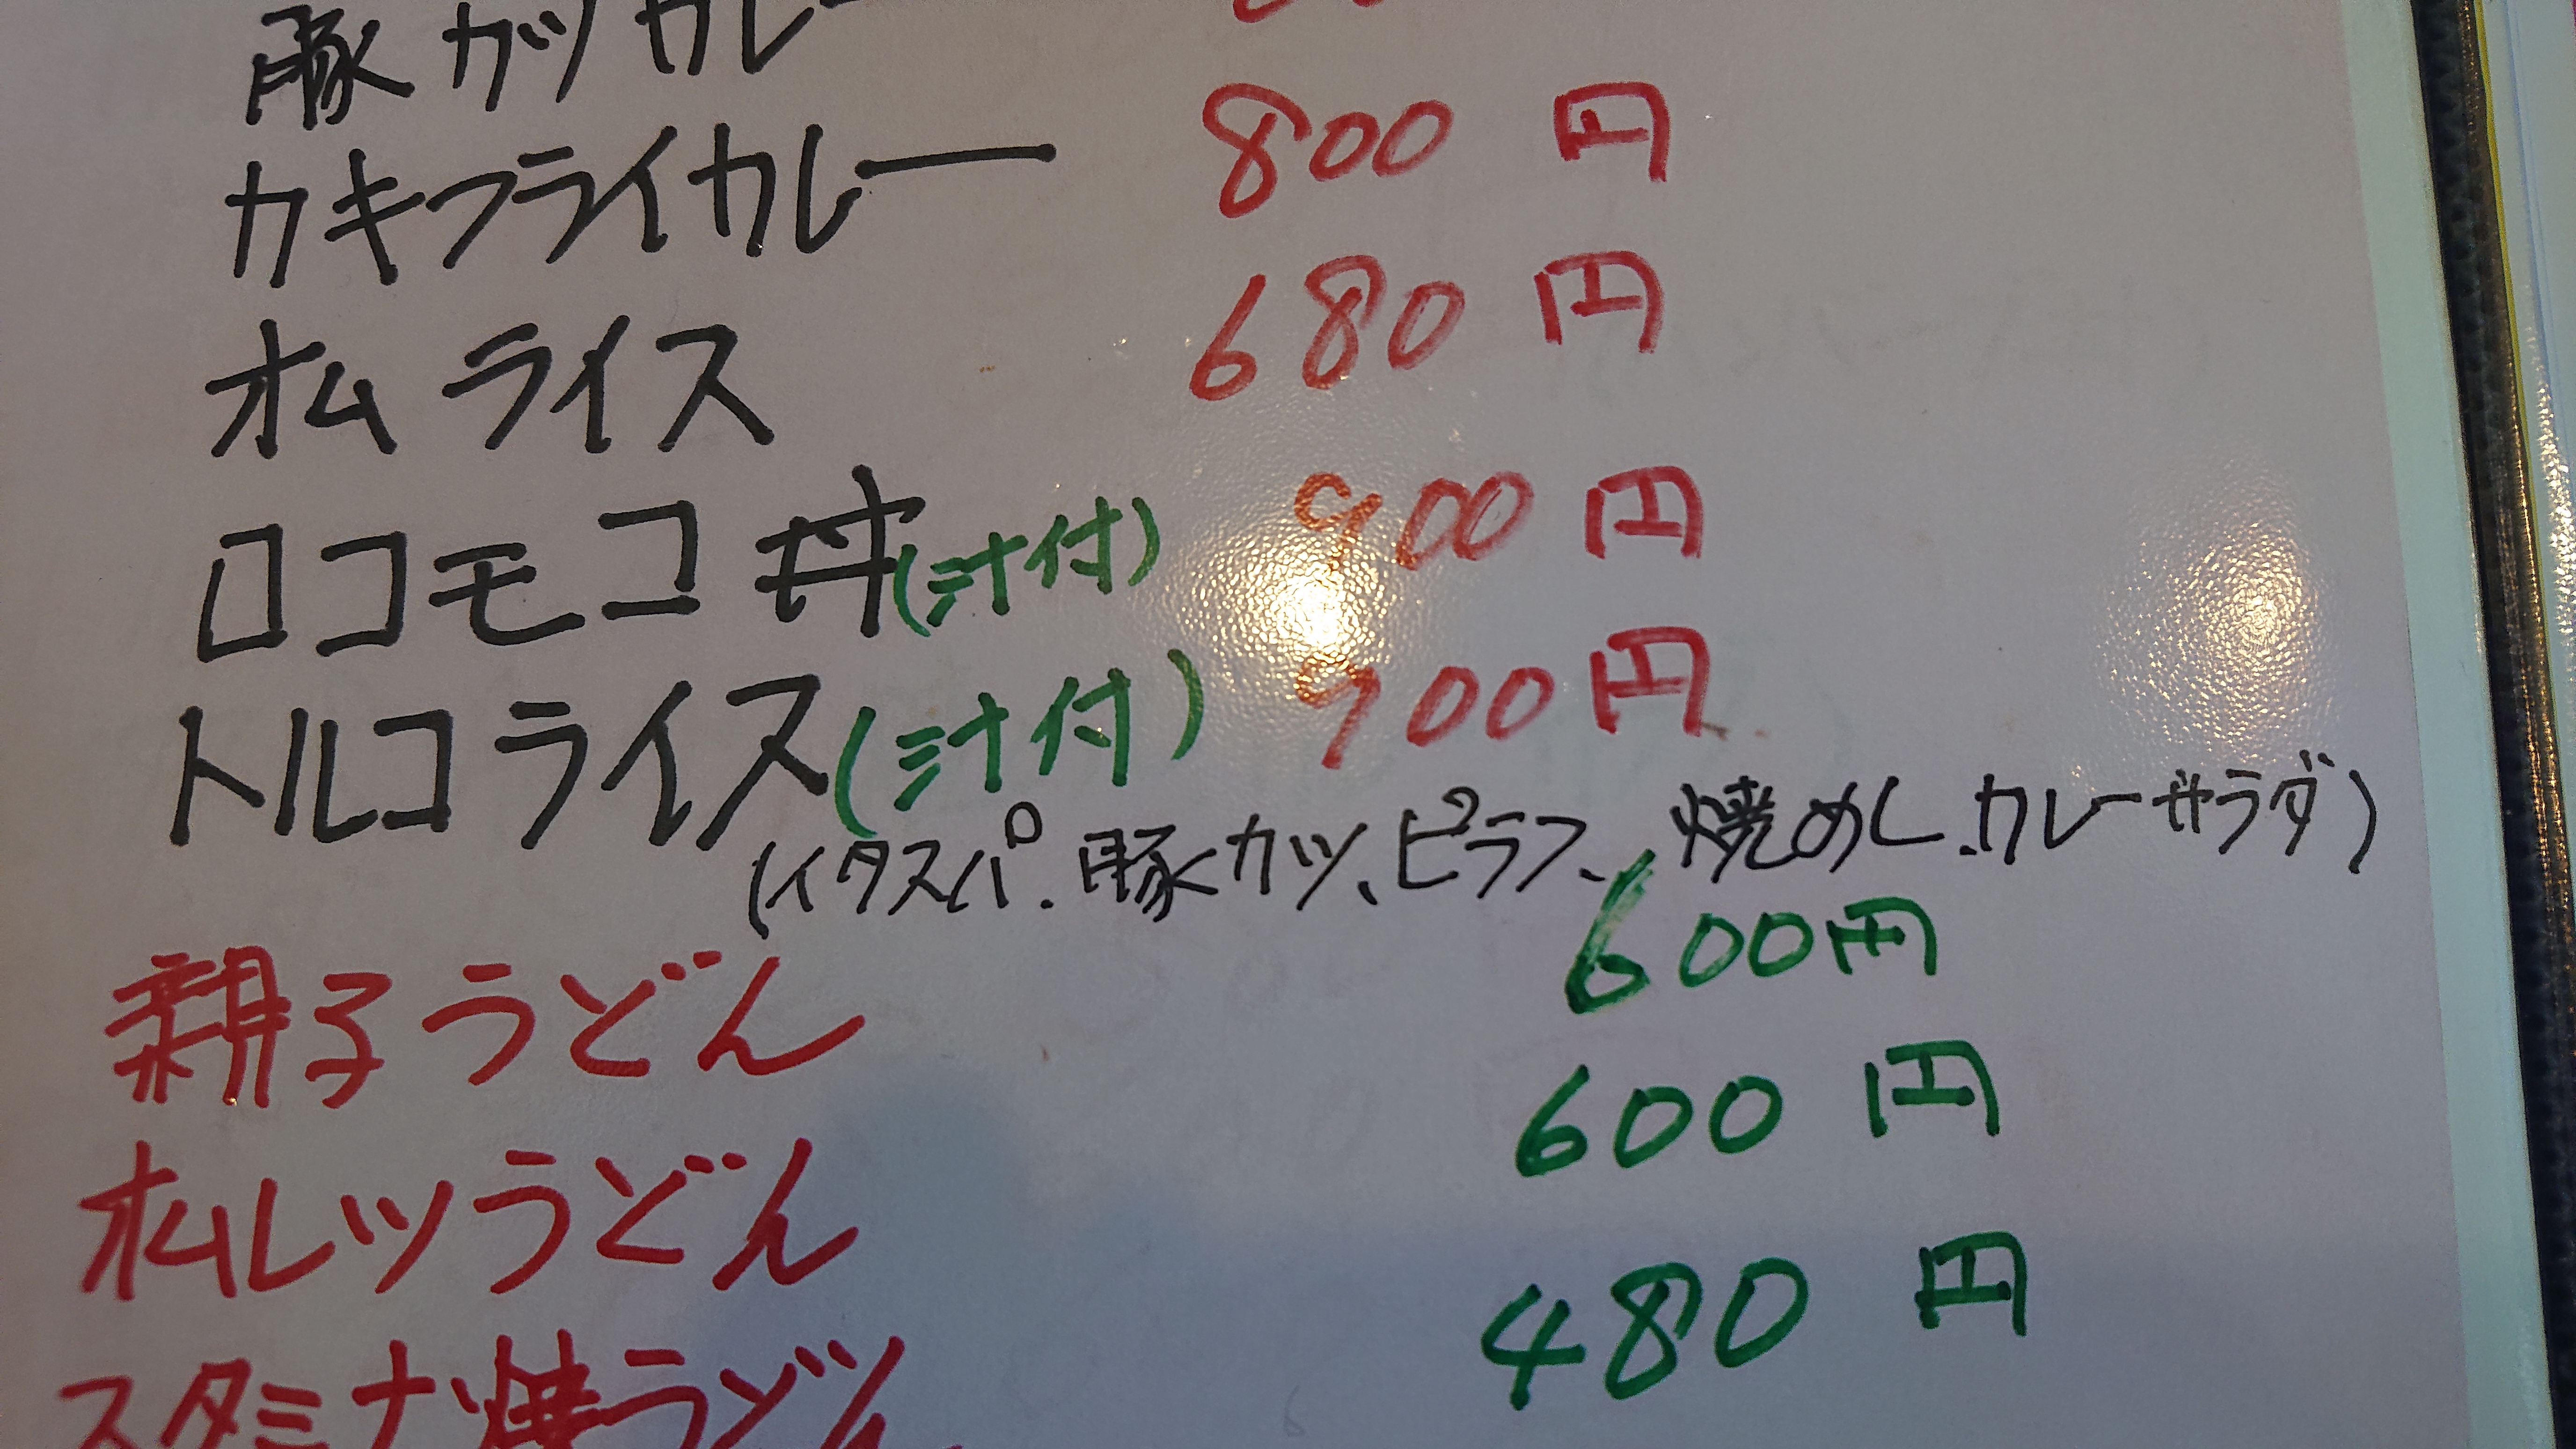 豚カツカレー
カキフライカレー 800円
オムライス 680円
ロコモコ丼(汁付) 900円
トルコライス(汁付) 900円
(イタスパ.豚カツ、ピラフ、焼めし.カレーサラダ)
親子うどん 600円
オムレツうどん 600円
スタミナ焼うどん 480円